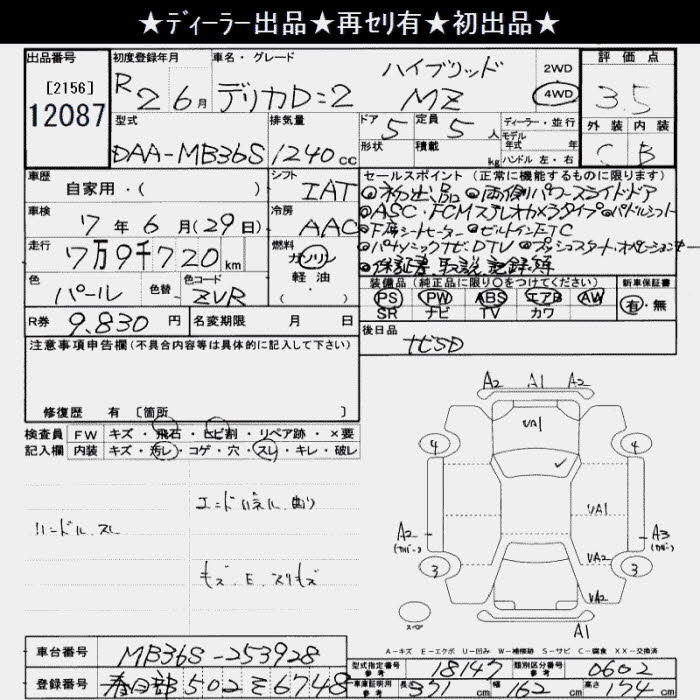 ★ディーラー出品★再セリ有★初出品★
出品番号
[2156]
12087
初度登録年月
R2 6月
車名・グレード
デリカD:2
ハイブリッド
MZ
2WD
4WD
評価点
3.5
外装 内装
C B
型式
DAA-MB36S
排気量
1240cc
ドア 5
形状
定員 5人
積載 kg
ディーラー・並行
モデル
年式 年
ハンドル 左・右
車歴
自家用・( )
シフト
IAT
車検
7年6月(29日)
冷房
AAC
走行
7万9千720km
燃料
ガソリン
軽油
( )
色
パール
色替
色コード
ZVR
R券 9,830円
名変期限 月 日
セールスポイント (正常に機能するものに限ります)
◎初出品 ◎両側パワースライドドア
◎ASC・FCMステレオカメラタイプ◎パドルシフト
◎F席シートヒーター◎ビルトインETC
◎パナソニックナビDTV◎プッシュスタートオペレーションキー
◎保証書 取説 記録簿
装備品 (純正品に限り○をつけてください)
PS PW ABS エアB AW
SR ナビ TV カワ
新車保証書
有・無
後日品
ナビSD
注意事項申告欄(不具合内容等は具体的に記入して下さい)
修復歴 有 [箇所 ]
検査員
記入欄
FW キズ・飛石・ヒビ割・リペア跡・×要
内装 キズ・汚レ・コゲ・穴・スレ・キレ・破レ
ハンドル スレ
エンドパネル 曲り
キズ・E・スリキズ
A2 A1 A2
VA1
4 4
VA1
A2
(カバー)
A3
(カバー)
3 3
VA2
VA2
スペア
A1
A-キズ E-エクボ U-凹み W-補修跡 S-サビ C-腐食 XX-交換済
車台番号
MB36S-253928
登録番号
春日部 502 そ 6748
型式指定番号
参考
18147
類別区分番号
参考
0602
車庫証明用
参考
長さ 371cm
幅 162cm
高さ 174cm